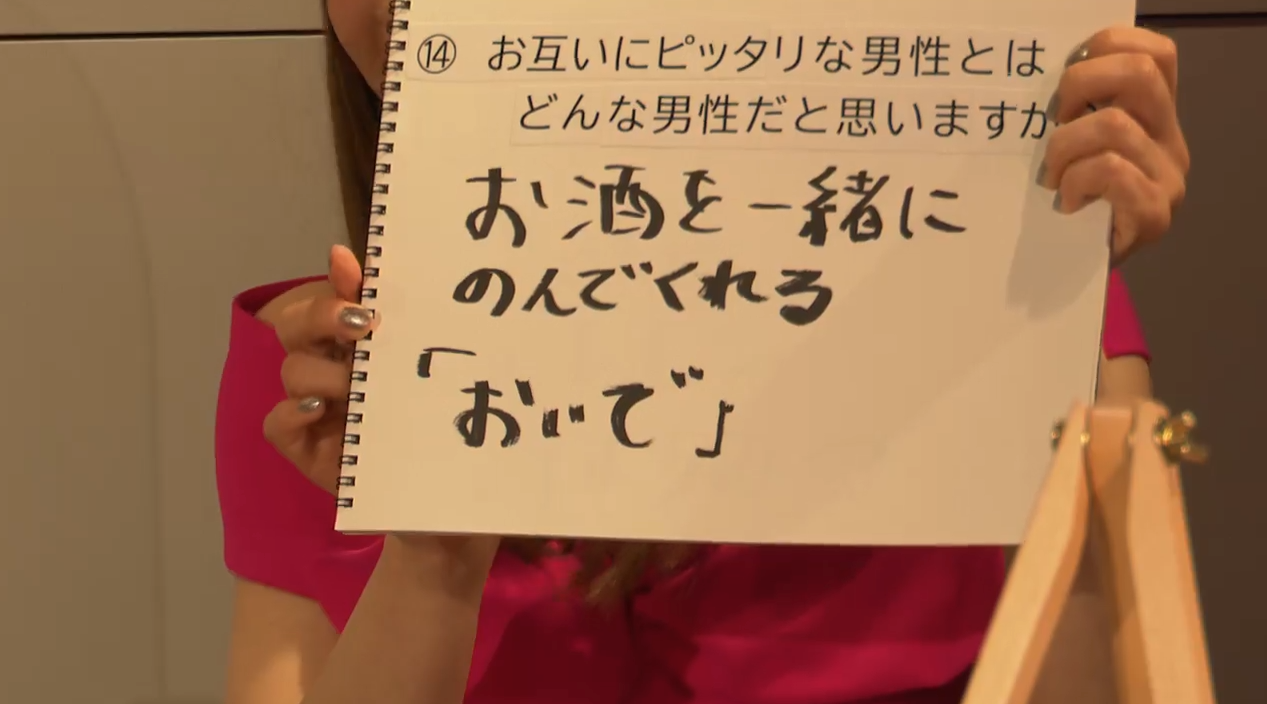 ⑭ お互いにピッタリな男性とは
どんな男性だと思いますか
お酒を一緒に
のんでくれる
「おいで」